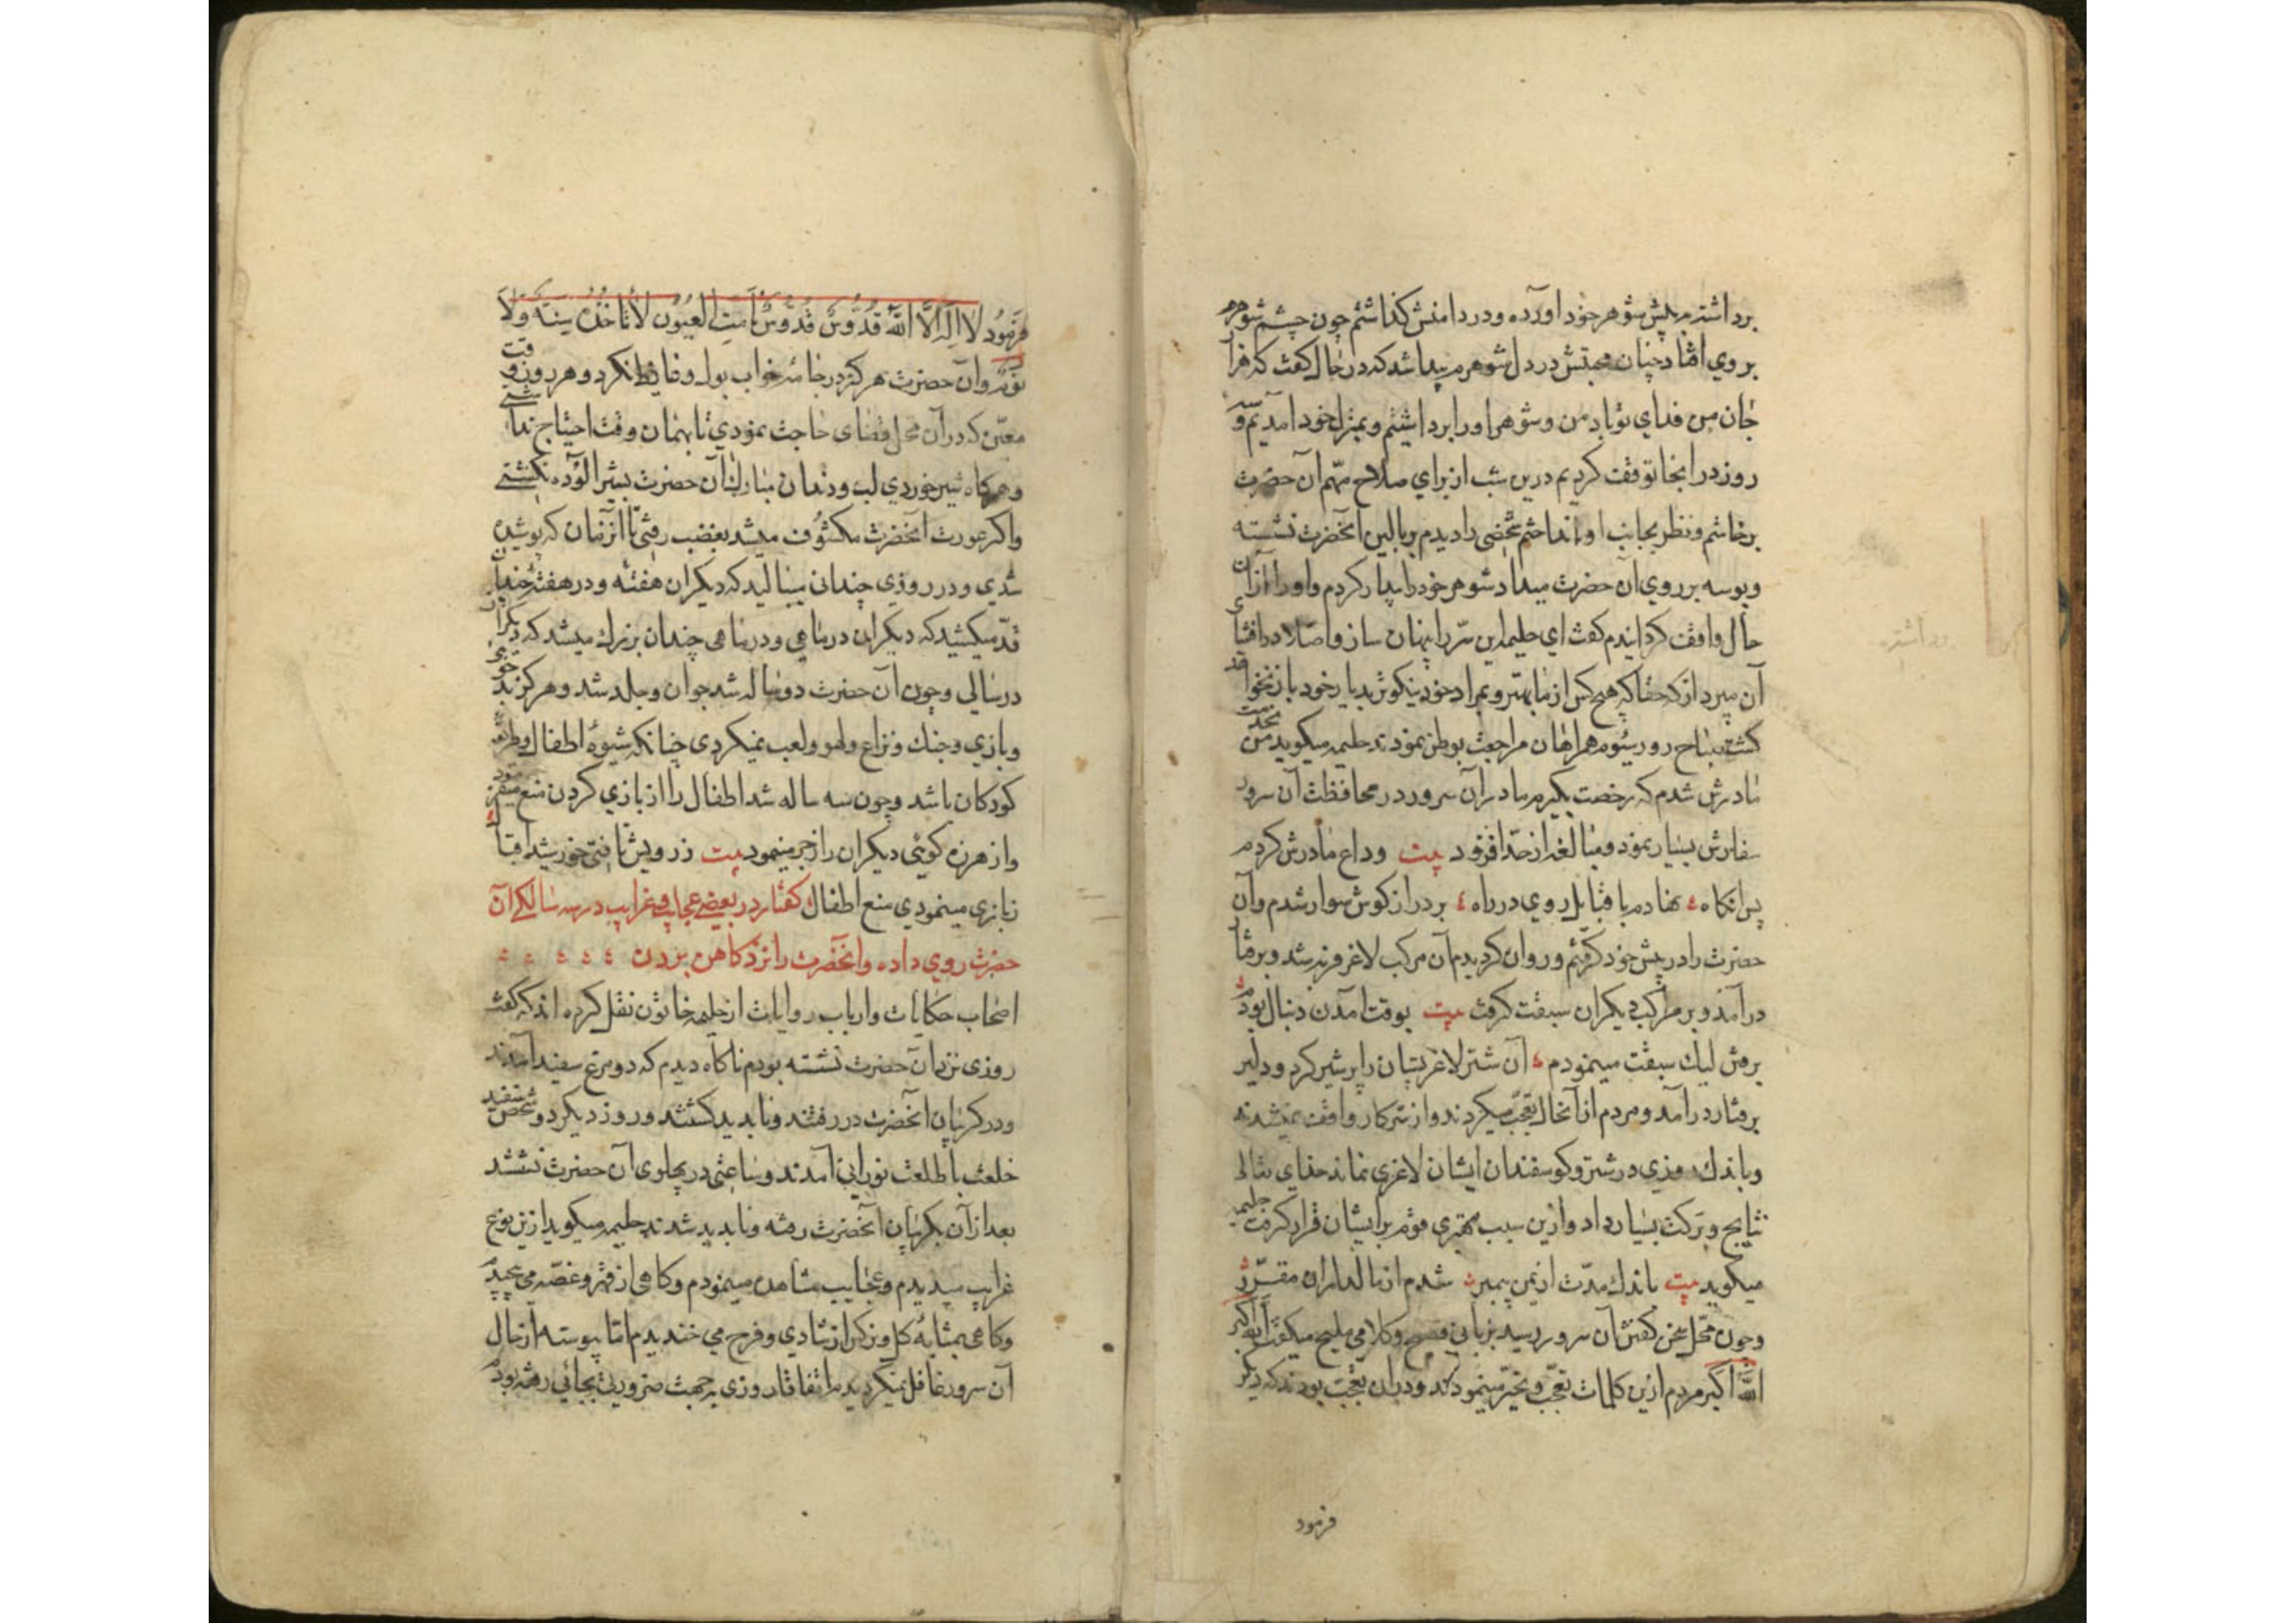 برداشتم پیش شوهر خود آورده و در دامنش کذاشتم چون چشم شوهرم
بروی افتاد چنان محبتش در دل شوهرم پیدا شد که در حال کفت که فرا
جان من فدای تو باد من و شوهر او را برداشتیم و بمنزل خود آمدیم و سه
روز در اینجا توقف کردیم درین شب از برای صلاح مهم آن حضرت
برخاستم و نظر بجانب او انداختم شخصی را دیدم بر بالین آنحضرت نشسته
و بوسه بر روی آن حضرت میداد شوهر خود را بیدار کردم و او را از آن
حال واقف کردانیدم کفت ای حلیمه این سر را پنهان ساز و اصلا در افشای
آن مپرداز که حقا که هیچ کس از ما بهتر و بمراد خود نیکوتر بدیار خود باز نخواهد
کشت بناح روز سیوم همراهان مراجعت بوطن نمودند حلیمه میکوید من بخدمت
مادرش شدم که رخصت بکیرم مادر آن سرور در محافظت آن سرور
سفارش بسیار نمود و مبالغه از حد افزود بیت وداع مادرش کردم
پس انکاه نهادم با قبایل روی در راه بر دراز کوش سوار شدم و آن
حضرت را در پیش خود کرفتم و روان کردیدم آن مرکب لاغر فربه شد و برفتار
درآمد و بر مرکب دیکران سبقت کرفت بیت بوقت آمدن دنبال بودم
برفتن لیک سبقت مینمودم آن شتر لاغر پستان را پر شیر کرد و دلیر
برفتار درآمد و مردم از آنحال تعجب میکردند و از سر کار واقف نمیشدند
و باندک روزی در شتر و کوسفندان ایشان لاغری نماند خدای تعالی
نتایج و برکت بسیار داد و ازین سبب مهتری قوم بر ایشان قرار کرفت حلیمه
میکوید بیت باندک مدت از یمن پیمبر شدم از مالداران مقرر
و چون محل سخن کفتن آن سرور رسید بزبانی فصیح و کلامی ملیح میکفت الله اکبر
الله اکبر مردم ازین کلمات تعجب و تحیر مینمودند و دران تعجب بودند که دیکر
فرمود
فرمود لا اله الا الله قدوس قدوس نامت العیون لا تاخذه سنة ولا
نوم و آن حضرت هرکز در جامه خواب بول و غایط نکرد و هر روز وقت
معین که در آن محل قضای حاجت نمودی تا بهمان وقت احتیاج نداشتی
و هرکاه شیر خوردی لب و دندان مبارک آن حضرت بشیر آلوده نکشتی
واکر عورت آنحضرت مکشوف میشد بغضب رفتی تا انزمان که پوشیده
شدی و در روزی چندانی میبالید که دیکران هفته و در هفته چندان
قد میکشید که دیکران در ماهی و در ماهی چندان بزرک میشد که دیکران
در سالی و چون آن حضرت دو ساله شد جوان و جلد شد و هرکز بدخوئی
و بازی و جنک و نزاع و لهو و لعب نمیکردی چنانکه شیوه اطفال و طریقه
کودکان باشد و چون سه ساله شد اطفال را از بازی کردن منع میفرمود
و از هرزه کوئی دیکران را زجر مینمود بیت ز رویش تافتی خورشید اقبال
ز بازی مینمودی منع اطفال کفتار در بعضی عجایب و غرایب در سه سالکی آن
حضرت روی داده و آنحضرت را نزد کاهن بردن
اصحاب حکایات و ارباب روایات از حلیمه خاتون نقل کرده اند که کفت
روزی نزد آن حضرت نشسته بودم ناکاه دیدم که دو مرغ سفید آمدند
و در کریبان آنحضرت در رفتند و ناپدید کشتند و روز دیکر دو شخص سفید
خلعت با طلعت نورانی آمدند و ساعتی در پهلوی آن حضرت نشستند
بعد از آن بکریبان آنحضرت رفته و ناپدید شدند حلیمه میکوید ازین نوع
غرایب میدیدم و عجایب مشاهده مینمودم و کاهی از قهر و غصه می پیچیدم
و کاهی بمثابه کل و نرکس از شادی و فرح می خندیدم اما پیوسته از حال
آن سرور غافل نمیکردیدم اتفاقا روزی بجهت ضرورتی بجائی رفته بودم